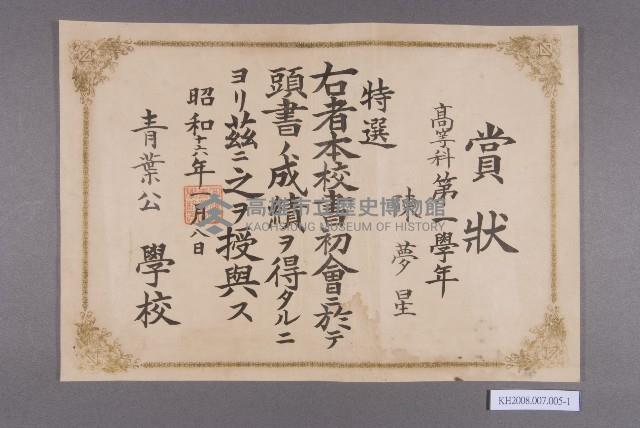 賞狀
高等科第一學年
陳夢星
特選
右者本校書初會ニ於テ
頭書ノ成績ヲ得タルニ
ヨリ茲ニ之ヲ授與ス
昭和十六年一月八日
青葉公學校
高雄市立歷史博物館
KAOHSIUNG MUSEUM OF HISTORY
KH2008.007.005-1